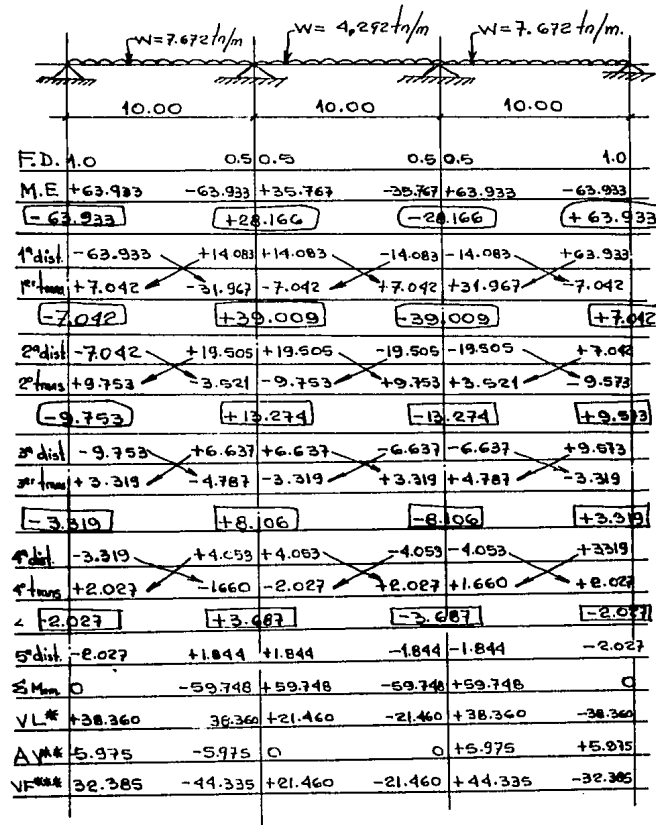 W=7.672 tn/m W= 4,292 tn/m W= 7.672 tn/m.
10.00 10.00 10.00
F.D. 1.0 0.5 0.5 0.5 0.5 1.0
M.E +63.933 -63.933 +35.767 -35.767 +63.933 -63.933
-63.933 +28.166 -28.166 +63.933
1ª dist. -63.933 +14.083 +14.083 -14.083 -14.083 +63.933
1er trans +7.042 -31.967 -7.042 +7.042 +31.967 -7.042
-7.042 +39.009 -39.009 +7.042
2ª dist -7.042 +19.505 +19.505 -19.505 -19.505 +7.042
2º trans +9.753 -3.521 -9.753 +9.753 +3.521 -9.573
-9.753 +13.274 -13.274 +9.573
3ª dist -9.753 +6.637 +6.637 -6.637 -6.637 +9.573
3er trans +3.319 -4.787 -3.319 +3.319 +4.787 -3.319
-3.319 +8.106 -8.106 +3.319
4ª dist. -3.319 +4.053 +4.053 -4.053 -4.053 +3319
4º trans +2.027 -1660 -2.027 +2.027 +1.660 +2.027
-2.027 +3.687 -3.687 -2.027
5ª dist. -2.027 +1.844 +1.844 -1.844 -1.844 -2.027
Σ Mom 0 -59.748 +59.748 -59.748 +59.748 0
VL* +38.360 38.360 +21.460 -21.460 +38.360 -38.360
ΔV** 5.975 -5.975 0 0 +5.975 +5.975
VF*** 32.385 -44.335 +21.460 -21.460 +44.335 -32.385